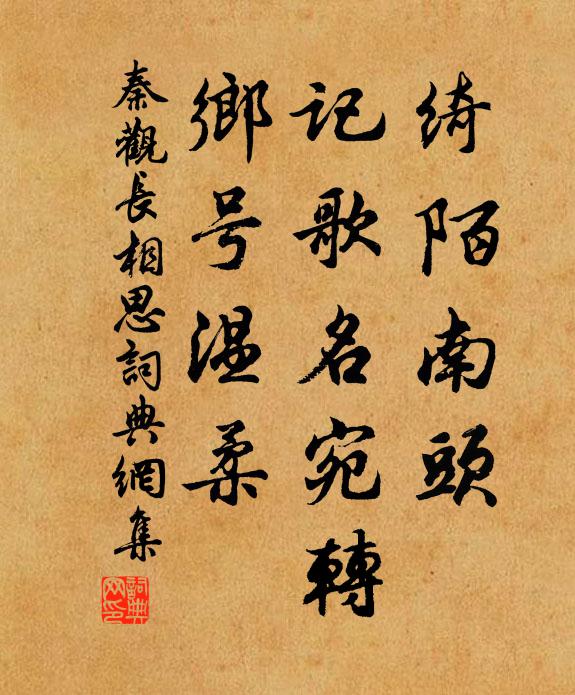 绮陌南頭
记歌名宛轉
鄉号温柔
秦觀長相思詞典網集
詞典网印